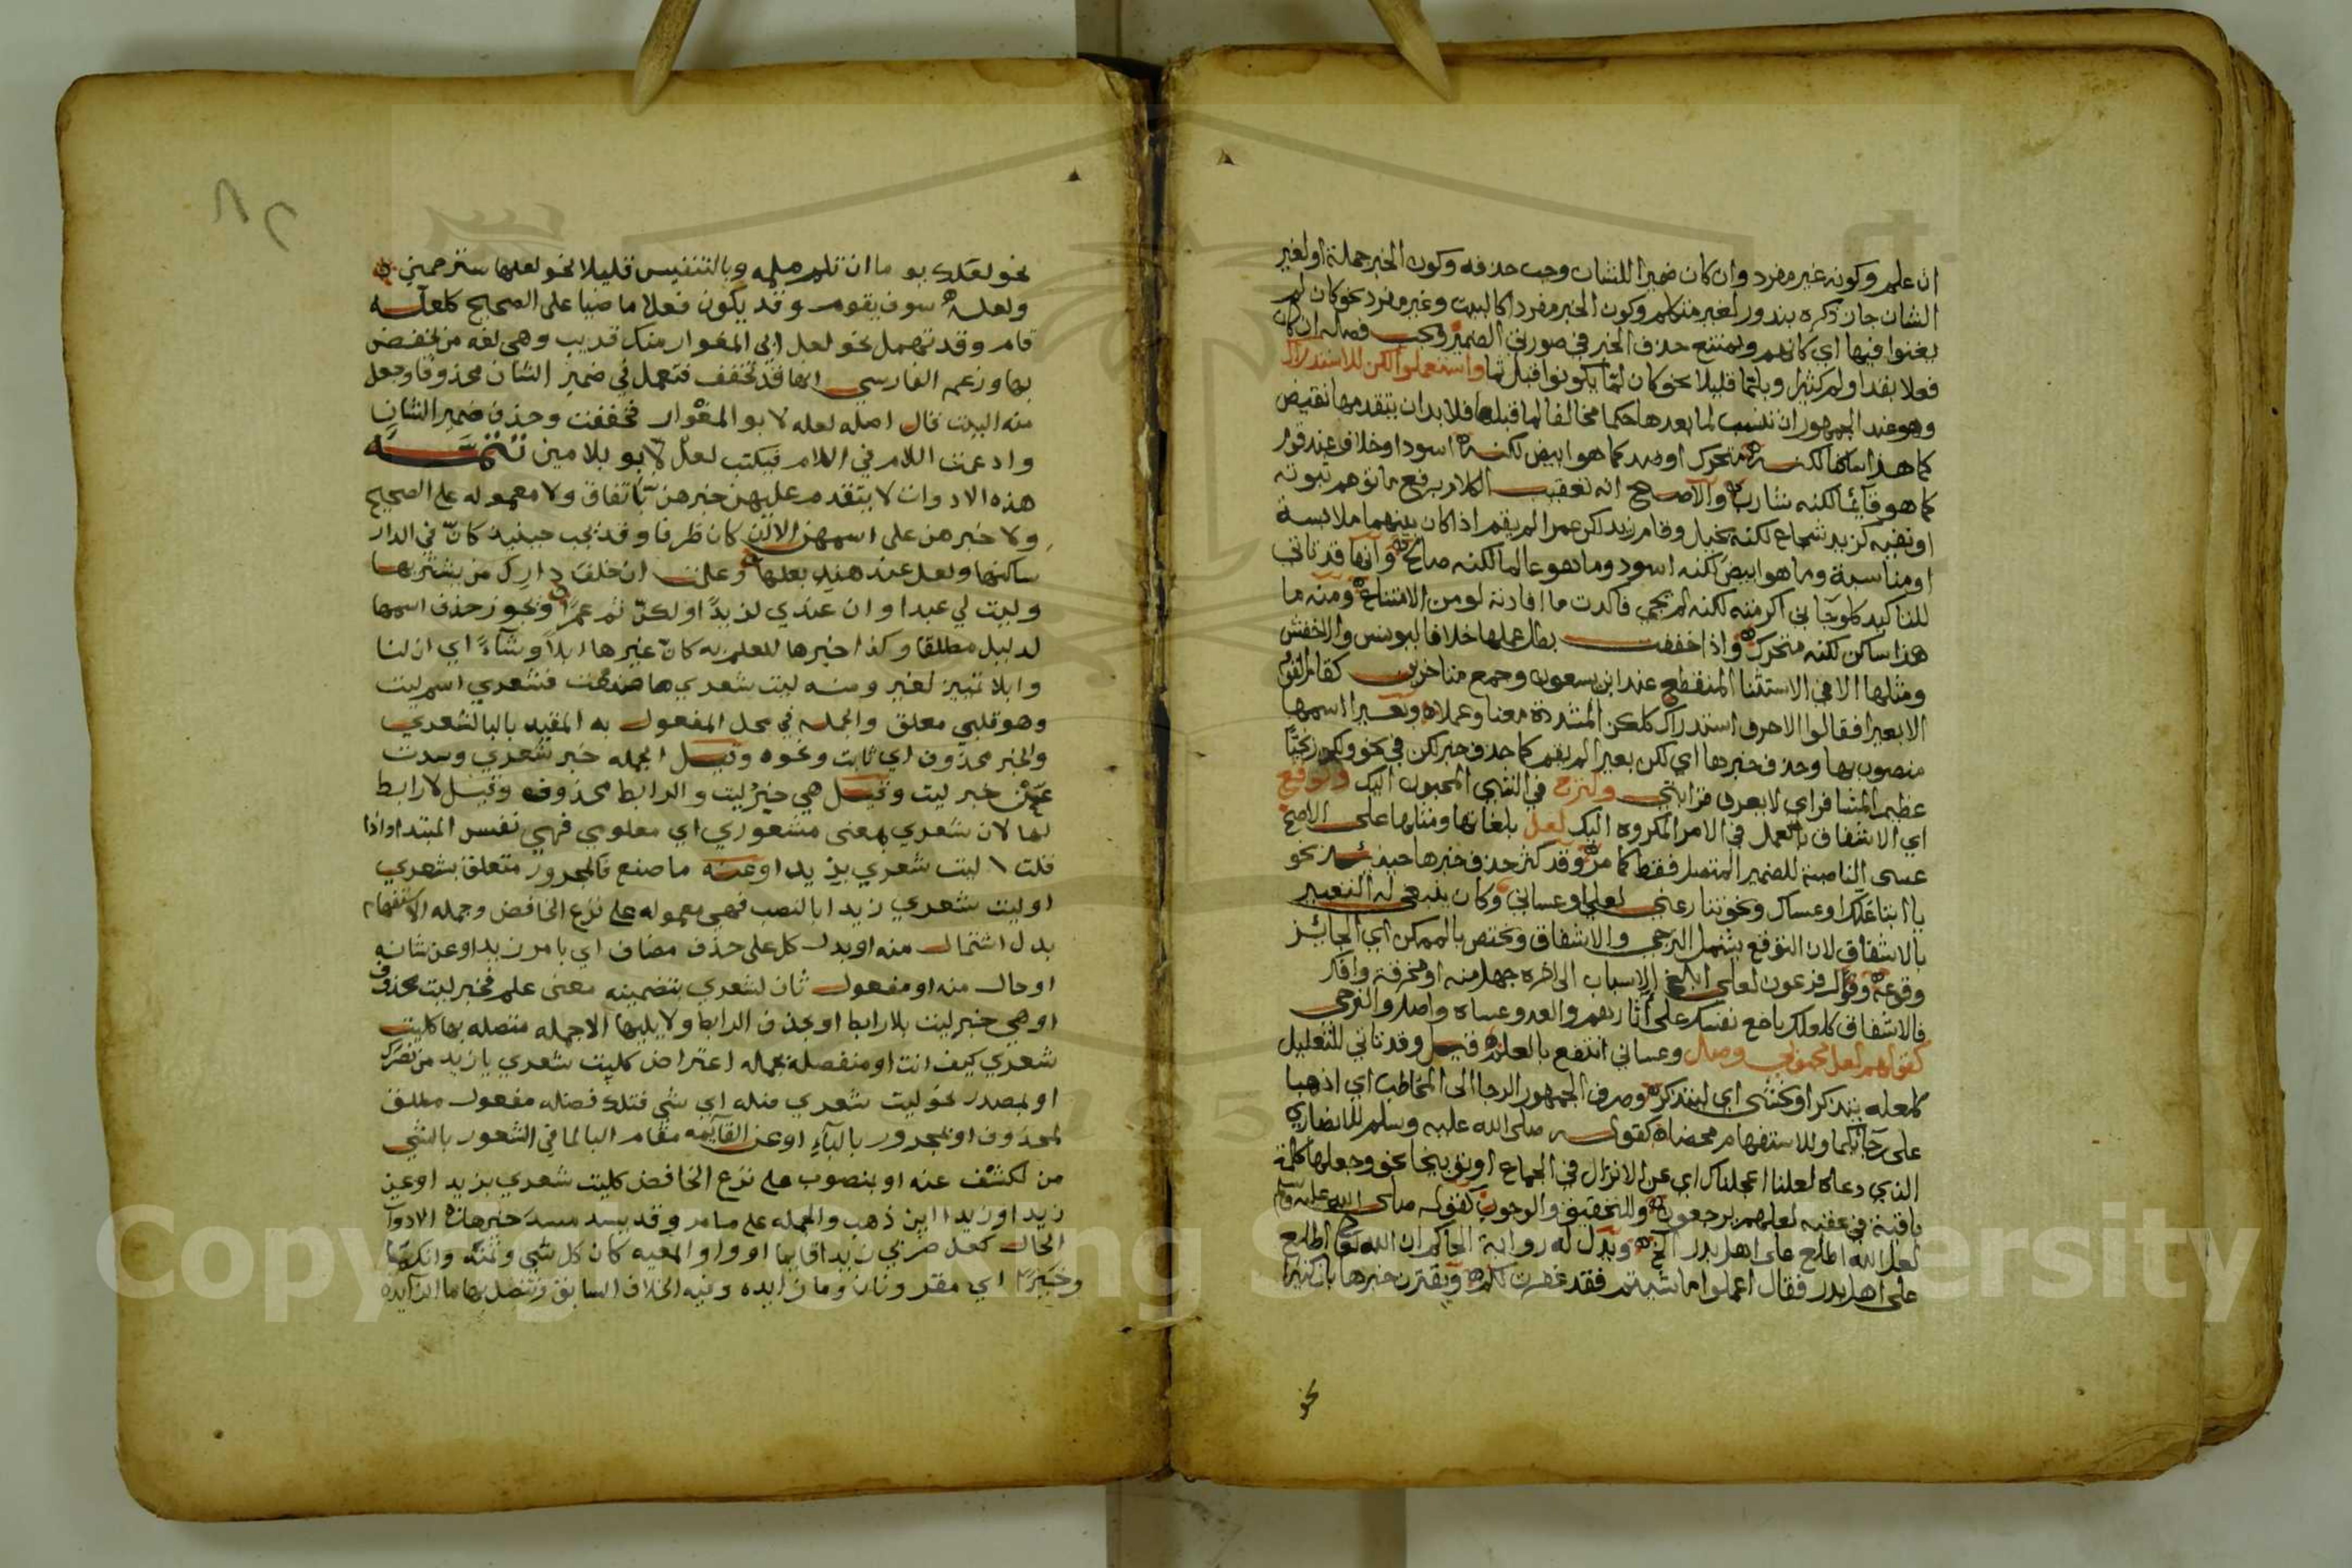 ان علم وكونه غير مفرد وان كان ضميرا للشان وجب حذفه وكون الخبر جملة او لغير
الشان جاز ذكره بندور لغير متكلم وكون الخبر مفردا كالبيت وغير مفرد نحو كان لم
يغنوا فيها اي كانهم ويمتنع حذف الخبر في صورتي الضمير ويجب فصله ان كان
فعلا بقد او لم كثيرا وبلما قليلا نحو كان لما يكونوا قبل ثما واستعملوا لكن للاستدراك
وهو عند الجمهور ان تنسب لما بعدها حكما مخالفا لما قبلها فلا بد ان يتقدمها نقيض
كما هذا ساكنا لكنه متحرك او ضد كما هو ابيض لكنه اسود او خلاف عند قوم
كما هو قائما لكنه شارب والاصح انه تعقيب الكلام برفع ما توهم ثبوته
او نفيه كزيد شجاع لكنه بخيل وقام زيد لكن عمرا لم يقم اذا كان بينهما ملابسة
او مناسبة وما هو ابيض لكنه اسود وما هو عالما لكنه صالح وانها قد تاتي
للتاكيد كلو جاني اكرمته لكنه لم يجي فاكدت ما افادته لو من الامتناع ومنه ما
هذا ساكن لكنه متحرك واذا خففت بطل عملها خلافا ليونس والاخفش
ومثلها الا في الاستثنا المنقطع عند ابن يسعون وجمع متاخرين كقام القوم
الا بعيرا فقالوا الا حرف استدراك كلكن المشددة معنا وعملا وبعيرا اسمها
منصوب بها وحذف خبرها اي لكن بعيرا لم يقم كما حذف خبر لكن في نحو ولكن زنجيا
عظيم المشافر اي لا يعرف قرابتي ولترج في الشي المحبوب اليك والتوقع
اي الاشفاق بالعمل في الامر المكروه اليك لعل بلغاتها ومثلها على الاصح
عسى الناصبة للضمير المتصل فقط كما مر وقد كثر حذف خبرها حينئذ نحو
يا ابتا علك او عساك ونحو تنازعني لعلي او عساني وكان ينبغي له التعبير
بالاشفاق لان التوقع يشمل الترجي والاشفاق وتختص بالممكن اي الجائز
وقوعه وقول فرعون لعلي ابلغ الاسباب الى اخره جهل منه او مخرقة وافك
فالاشفاق كلعلك باخع نفسك على آثارهم والعدو عساه واصل والترجي
كقولهم لعل محبوبي وصل وعساني انتفع بالعلم قيل وقد تاتي للتعليل
كلعله يتذكر او يخشى اي ليتذكر وصرف الجمهور الرجا الى المخاطب اي اذهبا
على رجائكما وللاستفهام محضا كقوله صلى الله عليه وسلم للانصاري
الذي دعاه لعلنا اعجلناك اي عن الانزال في الجماع او توبيخا نحو وجعلها كلمة
باقية في عقبه لعلهم يرجعون وللتحقيق والوجوب كقوله صلى الله عليه وسلم
لعل الله اطلع على اهل بدر الخ ويدل له رواية الحاكم ان الله تعالى اطلع
على اهل بدر فقال اعملوا ما شيتم فقد غفرت لكم ويقترن خبرها بان كثيرا
نحو
نحو لعلك يوما ان تلم ملمه وبالتنفيس قليلا نحو لعلها سترحمني
ولعله سوف يقوم وقد يكون فعلا ماضيا على الصحيح كلعله
قام وقد تهمل نحو لعل ابي المغوار منك قريب وهي لغه من يخفض
بها وزعم الفارسي انها قد تخفف فتعمل في ضمير الشان محذوفا وجعل
منه البيت قال اصله لعله لابو المغوار فخففت وحذف ضمير الشان
وادغمت اللام في اللام فيكتب لعل لابو بلامين تتمة
هذه الادوات لا يتقدم عليهن خبرهن باتفاق ولا معموله على الصحيح
ولا خبرهن على اسمهن الا ان كان ظرفا وقد يجب حينيد كان في الدار
ساكنها ولعل عند هند بعلها وعلمت ان خلف دارك من يشتريها
وليت لي عبدا وان عندي لزيدا ولكن ثم عمرا ويجوز حذف اسمها
لدليل مطلقا وكذا خبرها للعلم به كان غيرها ابلا وشاءً اي ان لنا
وابلا تمييز لغير ومنه ليت شعري ما صنعت فشعري اسم ليت
وهو قلبي معلق والجمله في محل المفعول به المقيد بالبا لشعري
والخبر محذوف اي ثابت ونحوه وقيل الجمله خبر شعري وسدت
عن خبر ليت وقيل هي خبر ليت والرابط محذوف وقيل لا رابط
لها لان شعري بمعنى مشعوري اي معلومي فهي نفس المبتدا واذا
قلت ليت شعري بزيد او عنه ما صنع فالمجرور متعلق بشعري
او ليت شعري زيدا بالنصب فهي معموله على نزع الخافض وجمله الاستفهام
بدل اشتمال منه او بدل كل على حذف مضاف اي بامر زيد او عن شانه
او حال منه او مفعول ثان لشعري بتضمينه معنى علم فخبر ليت محذوف
او هي خبر ليت بلا رابط او بحذف الرابط ولا يليها الا جمله متصله بها كليت
شعري كيف انت او منفصله بجمله اعتراض كليت شعري يا زيد من نصرك
او بمصدر نحو ليت شعري ضله اي شي قتلك فضله مفعول مطلق
لمحذوف او بمجرور بالباء او عن القائمه مقام البا لما في الشعور بالشي
من لكشف عنه او بمنصوب على نزع الخافض كليت شعري بزيد او عن
زيد او زيدا اين ذهب والجمله على ما مر وقد يسد مسد خبر هذه الادوات
الحال كعل ضربي زيدا قايما او واو المعيه كان كل شي وثمنه وانك
وخبرك اي مقرونان وما زايده وفيه الخلاف السابق وتتصل بها ما الزايده